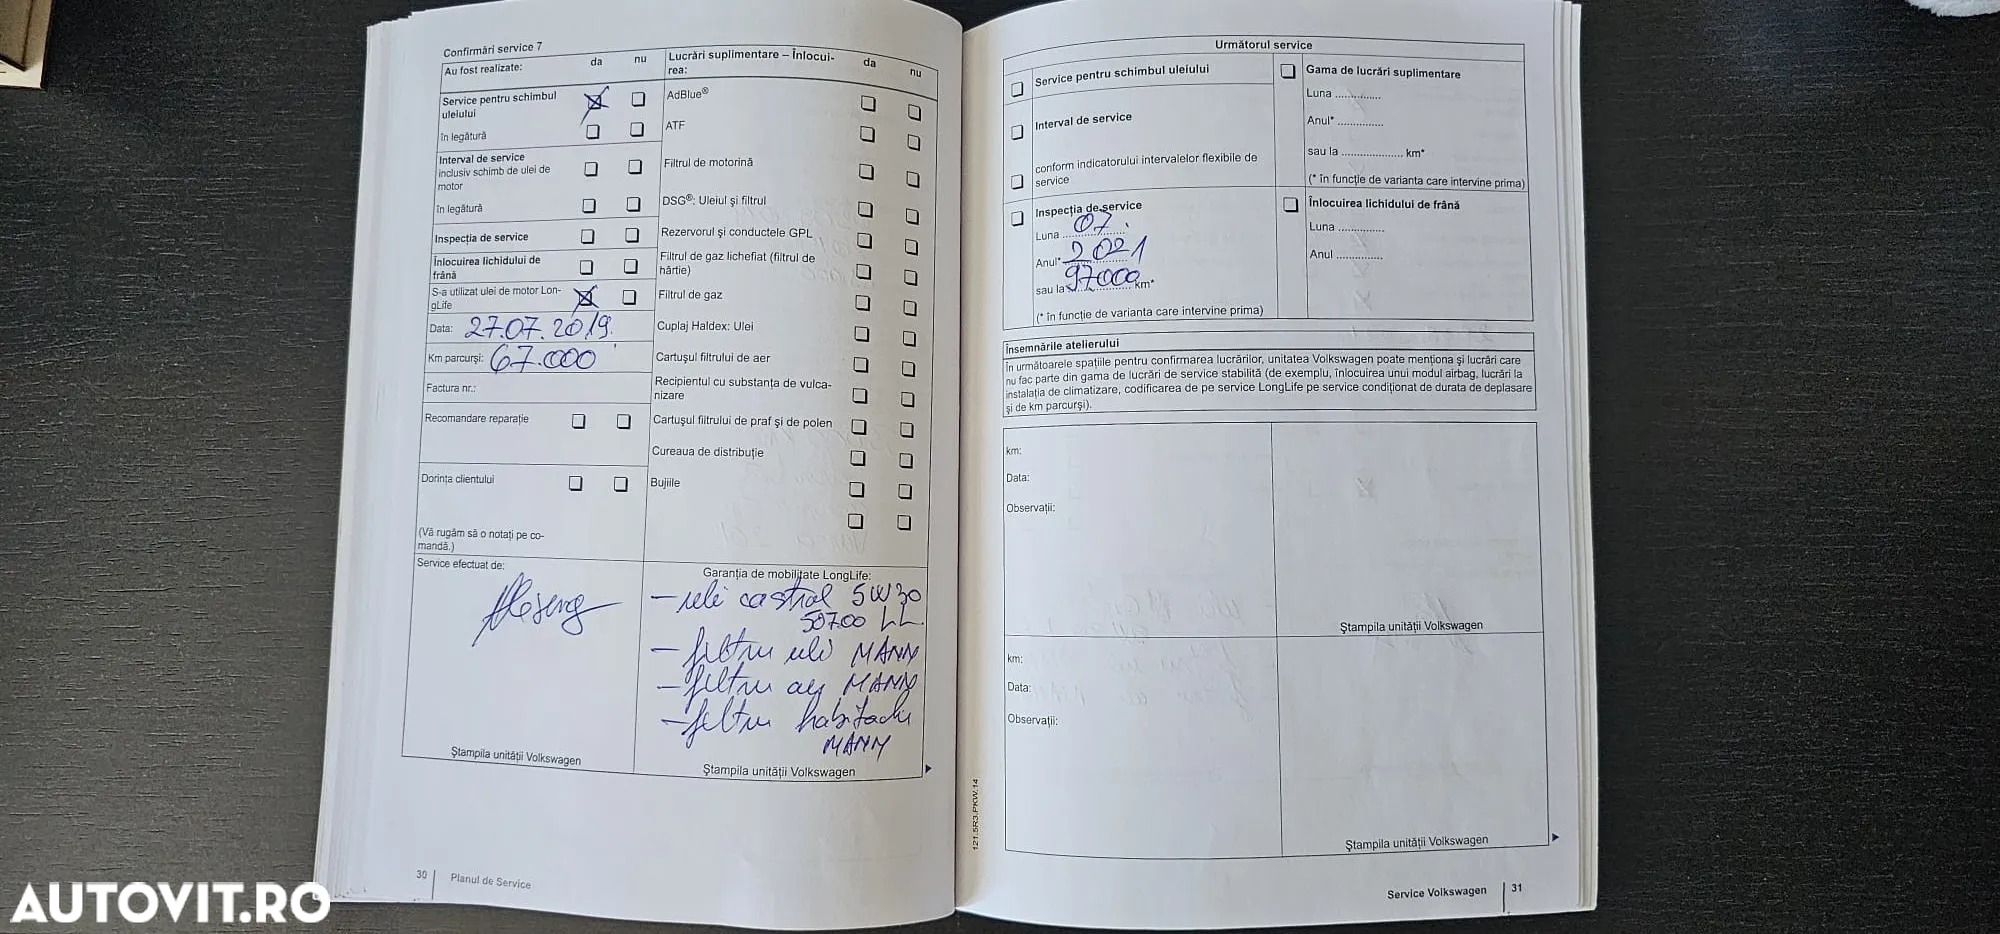 Confirmări service 7
Au fost realizate: da nu
Service pentru schimbul
uleiului
în legătură
Interval de service
inclusiv schimb de ulei de
motor
în legătură
Inspecția de service
Înlocuirea lichidului de
frână
S-a utilizat ulei de motor Lon-
gLife
Data: 27.07.2019.
Km parcurși: 67.000
Factura nr.:
Recomandare reparație
Dorința clientului
(Vă rugăm să o notați pe co-
mandă.)
Lucrări suplimentare – Înlocui-
rea: da nu
AdBlue®
ATF
Filtrul de motorină
DSG®: Uleiul și filtrul
Rezervorul și conductele GPL
Filtrul de gaz lichefiat (filtrul de
hârtie)
Filtrul de gaz
Cuplaj Haldex: Ulei
Cartușul filtrului de aer
Recipientul cu substanța de vulca-
nizare
Cartușul filtrului de praf și de polen
Cureaua de distribuție
Bujiile
Service efectuat de:
Ștampila unității Volkswagen
Garanția de mobilitate LongLife:
– ulei castrol 5W30
50700 LL.
– filtru ulei MANN
– filtru aer MANN
– filtru habitaclu
MANN
Ștampila unității Volkswagen
30 Planul de Service
Următorul service
Service pentru schimbul uleiului
Interval de service
conform indicatorului intervalelor flexibile de
service
Inspecția de service
Luna 07.
Anul* 2021
sau la 97000 km*
(* în funcție de varianta care intervine prima)
Gama de lucrări suplimentare
Luna ...............
Anul* ...............
sau la .................... km*
(* în funcție de varianta care intervine prima)
Înlocuirea lichidului de frână
Luna ...............
Anul ...............
Însemnările atelierului
În următoarele spațiile pentru confirmarea lucrărilor, unitatea Volkswagen poate menționa și lucrări care
nu fac parte din gama de lucrări de service stabilită (de exemplu, înlocuirea unui modul airbag, lucrări la
instalația de climatizare, codificarea de pe service LongLife pe service condiționat de durata de deplasare
și de km parcurși).
km:
Data:
Observații:
Ștampila unității Volkswagen
km:
Data:
Observații:
Ștampila unității Volkswagen
121.5R3.PKW.14
Service Volkswagen 31
AUTOVIT.RO